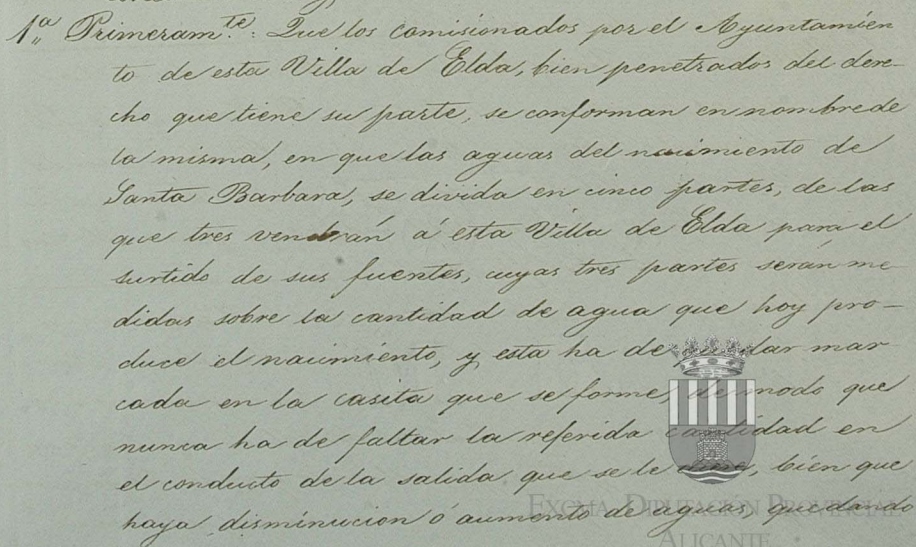 1ª Primeramte: Que los comisionados por el Ayuntamien
to de esta Villa de Elda, bien penetrados del dere-
cho que tiene su parte, se conforman en nombre de
la misma, en que las aguas del nacimiento de
Santa Barbara, se divida en cinco partes, de las
que tres vendrán á esta Villa de Elda para el
surtido de sus fuentes, cuyas tres partes serán me
didas sobre la cantidad de agua que hoy pro-
duce el nacimiento, y esta ha de quedar mar
cada en la casita que se forme, de modo que
nunca ha de faltar la referida cantidad en
el conducto de la salida que se le diere, bien que
haya disminucion ó aumento de aguas, quedando
EXCMA. DIPUTACIÓN PROVINCIAL
ALICANTE